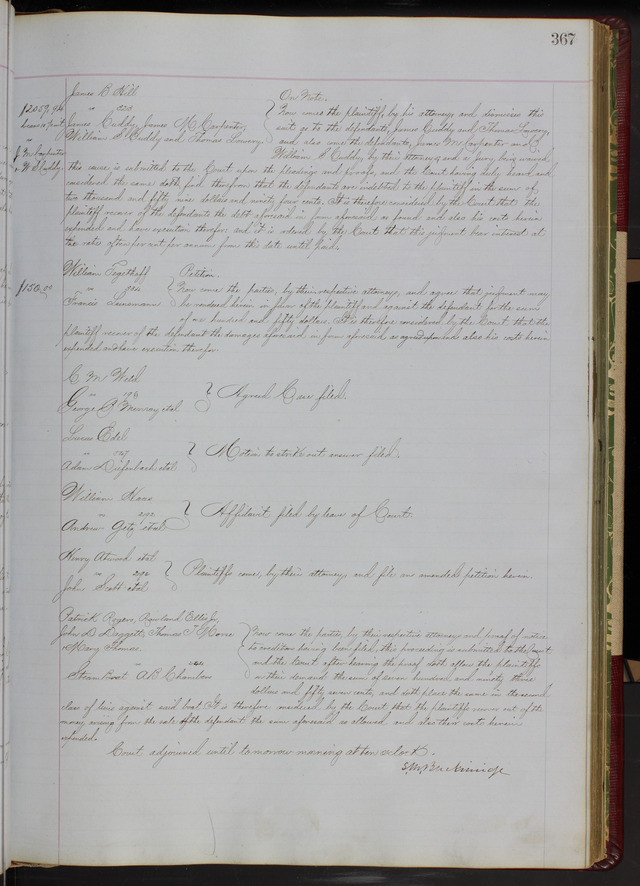 367
James B Hill
On Note.
$2059.94
James Cuddy, James M Carpenter,
William S Cuddy and Thomas Lowrey.
Now comes the plaintiff, by his attorney, and dismisses this
suit as to the defendants, James Cuddy and Thomas Lowrey,
and also come the defendants, James M Carpenter and
William S Cuddy, by their attorney, and a jury being waived,
J M Carpenter
W S Cuddy
this cause is submitted to the Court upon the pleadings and proofs, and the Court having duly heard and
considered the same doth find therefrom that the defendants are indebted to the plaintiff in the sum of
two thousand and fifty nine dollars and ninety four cents. It is therefore considered by the Court that the
plaintiff recover of the defendants the debt aforesaid in form aforesaid as found and also his costs herein
expended and have execution therefor, and it is ordered by the Court that this judgment bear interest at
the rate of ten per cent per annum from this date until paid.
William Tegethoff
Petition.
$150.00
Francis Leinemann
Now come the parties, by their respective attorneys, and agree that judgment may
be rendered herein in favor of the plaintiff and against the defendant for the sum
of one hundred and fifty dollars. It is therefore considered by the Court that the
plaintiff recover of the defendant the damages aforesaid in form aforesaid, as agreed upon and also his costs herein
expended and have execution therefor.
C M
George P et al
Agreed Case filed.
Lucas Edel
Adam Diefenbach et al
Motion to strike out answer filed.
William Haas
Andrew Getz et al
Affidavit filed by leave of Court.
Henry Atwood et al
John Scott et al
Plaintiffs come, by their attorney, and file an amended petition herein.
Patrick Rogers, Rowland Ellis Jr,
John D Daggett, Thomas T Morse
Mary Thomas.
Steam Boat A B Chambers
Now come the parties, by their respective attorneys and proof of notice
to creditors having been filed, this proceeding is submitted to the Court
and the Court after hearing the proof doth allow the plaintiffs
on their demand the sum of seven hundred and ninety three
dollars and fifty seven cents, and doth place the same in the second
class of liens against said boat. It is therefore considered by the Court that the plaintiffs recover out of the
money arising from the sale of the defendant the sum aforesaid so allowed and also their costs herein
expended.
Court adjourned until tomorrow morning at ten o'clock.
S. M. Breckinridge